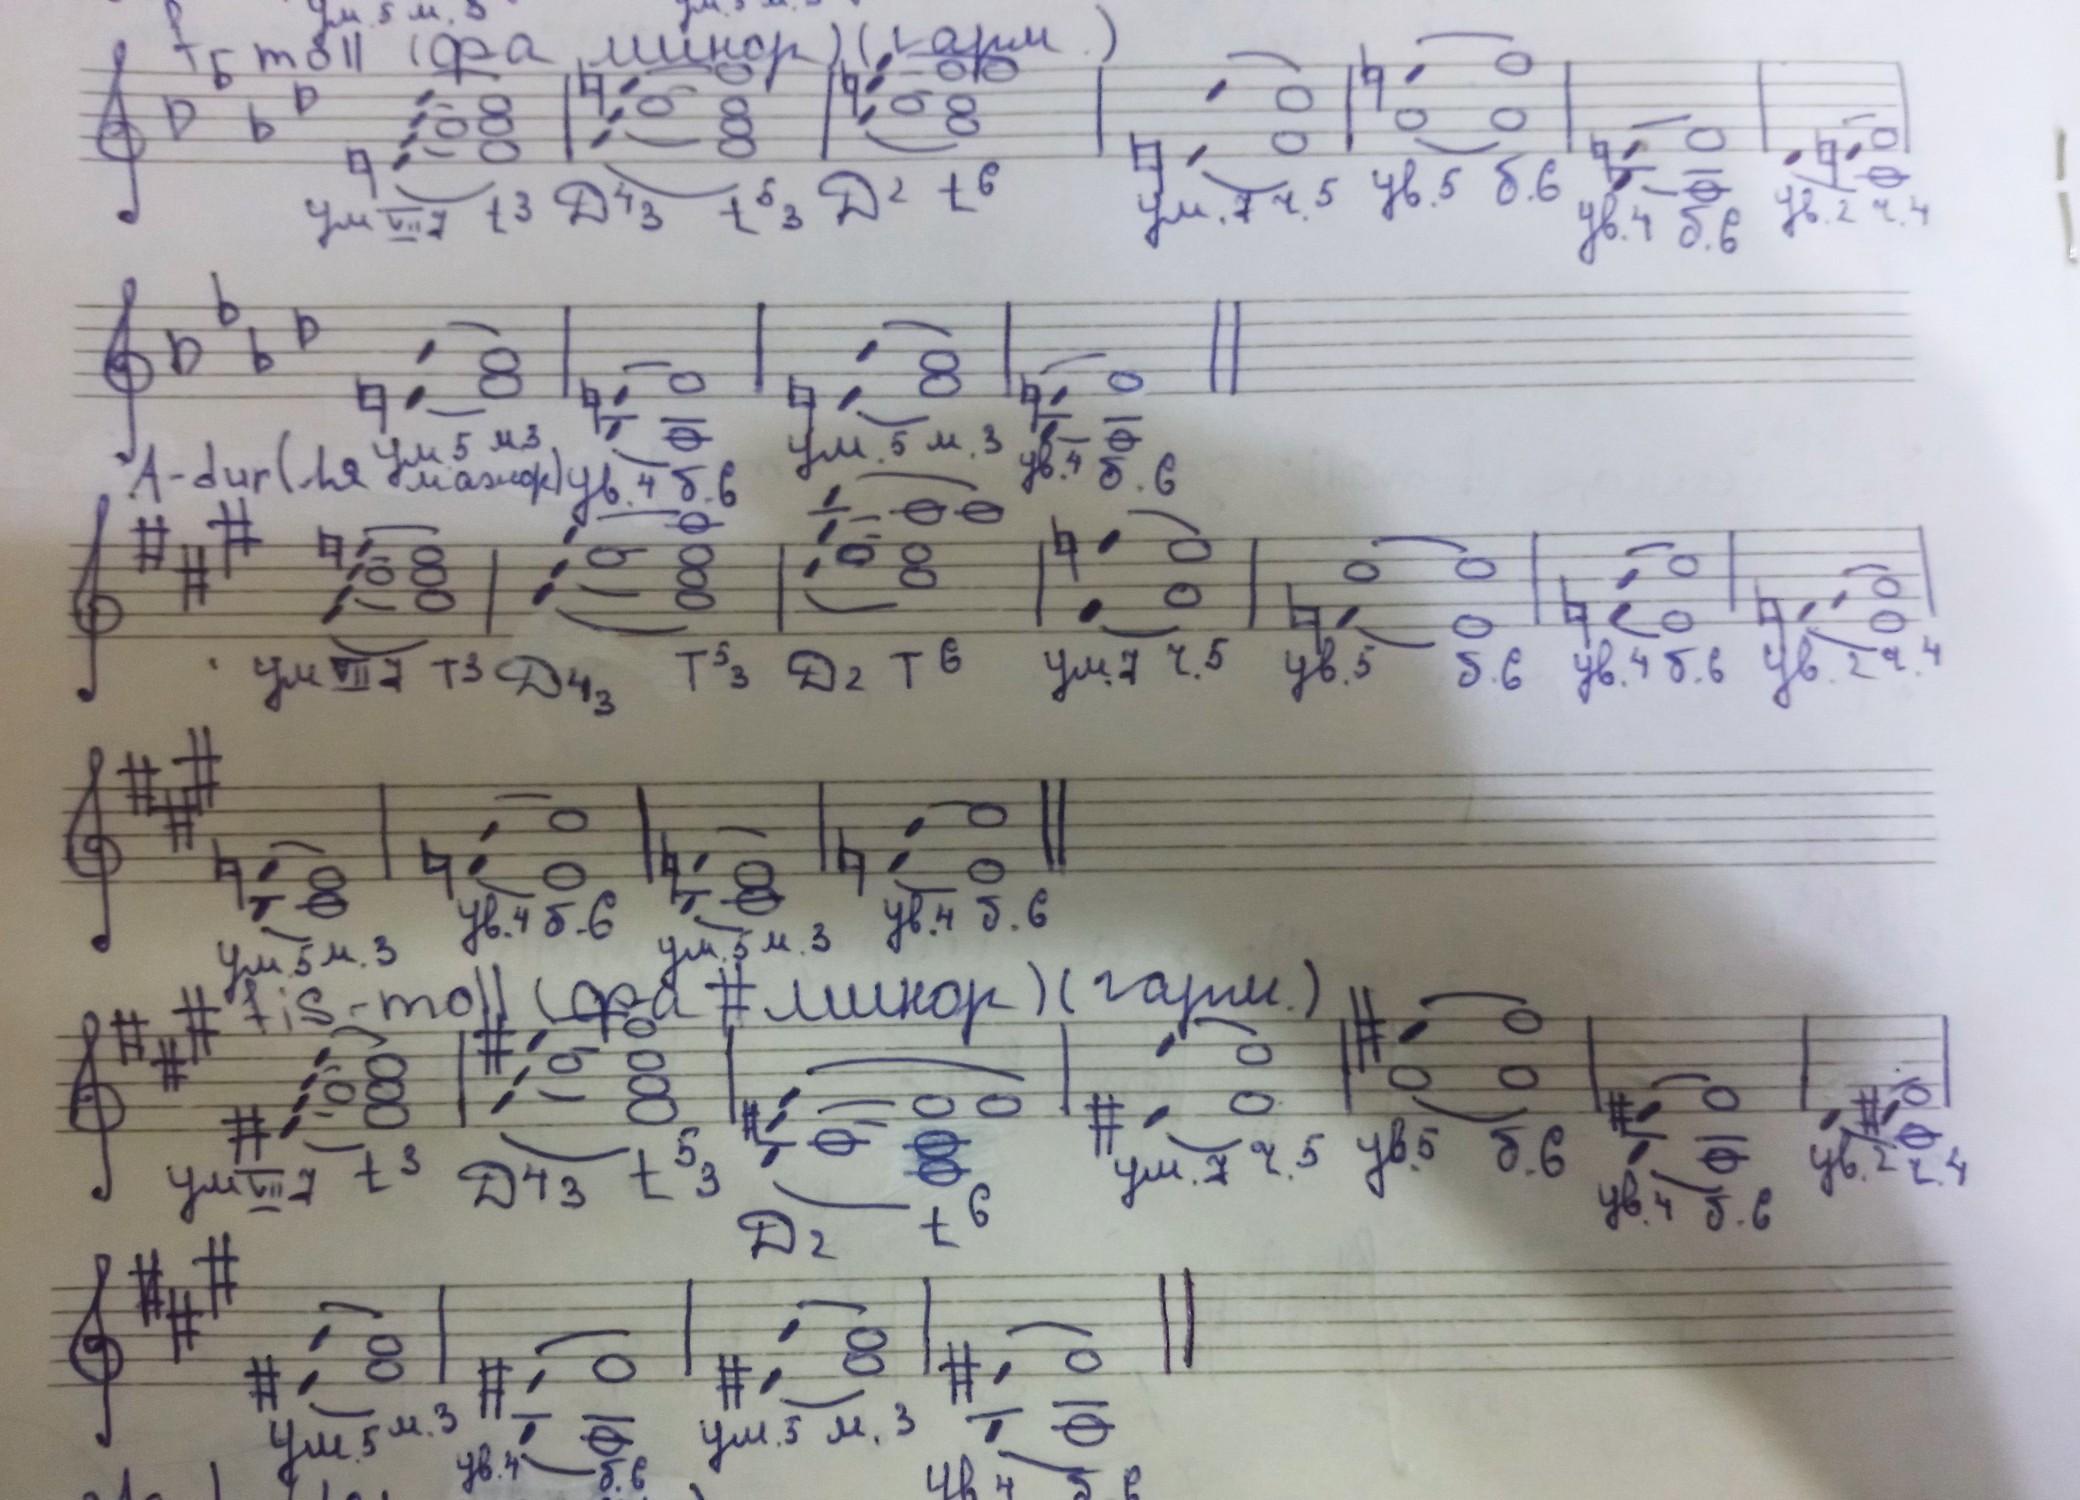 ум.5 м.3 ум.5 м.3
f moll (фа минор) (гарм.)
ум VII 7 t3 D4 3 t5 3 D2 t6 ум.7 ч.5 ув.5 б.6 ув.4 б.6 ув.2 ч.4
ум.5 м3 ув.4 б.6 ум.5 м.3 ув.4 б.6
A-dur (ля мажор)
ум VII 7 T3 D4 3 T5 3 D2 T6 ум.7 ч.5 ув.5 б.6 ув.4 б.6 ув.2 ч.4
ум.5 м.3 ув.4 б.6 ум.5 м.3 ув.4 б.6
fis-moll (фа # минор) (гарм.)
ум VII 7 t3 D4 3 t5 3 D2 t6 ум.7 ч.5 ув.5 б.6 ув.4 б.6 ув.2 ч.4
ум.5 м.3 ув.4 б.6 ум.5 м.3 ув.4 б.6